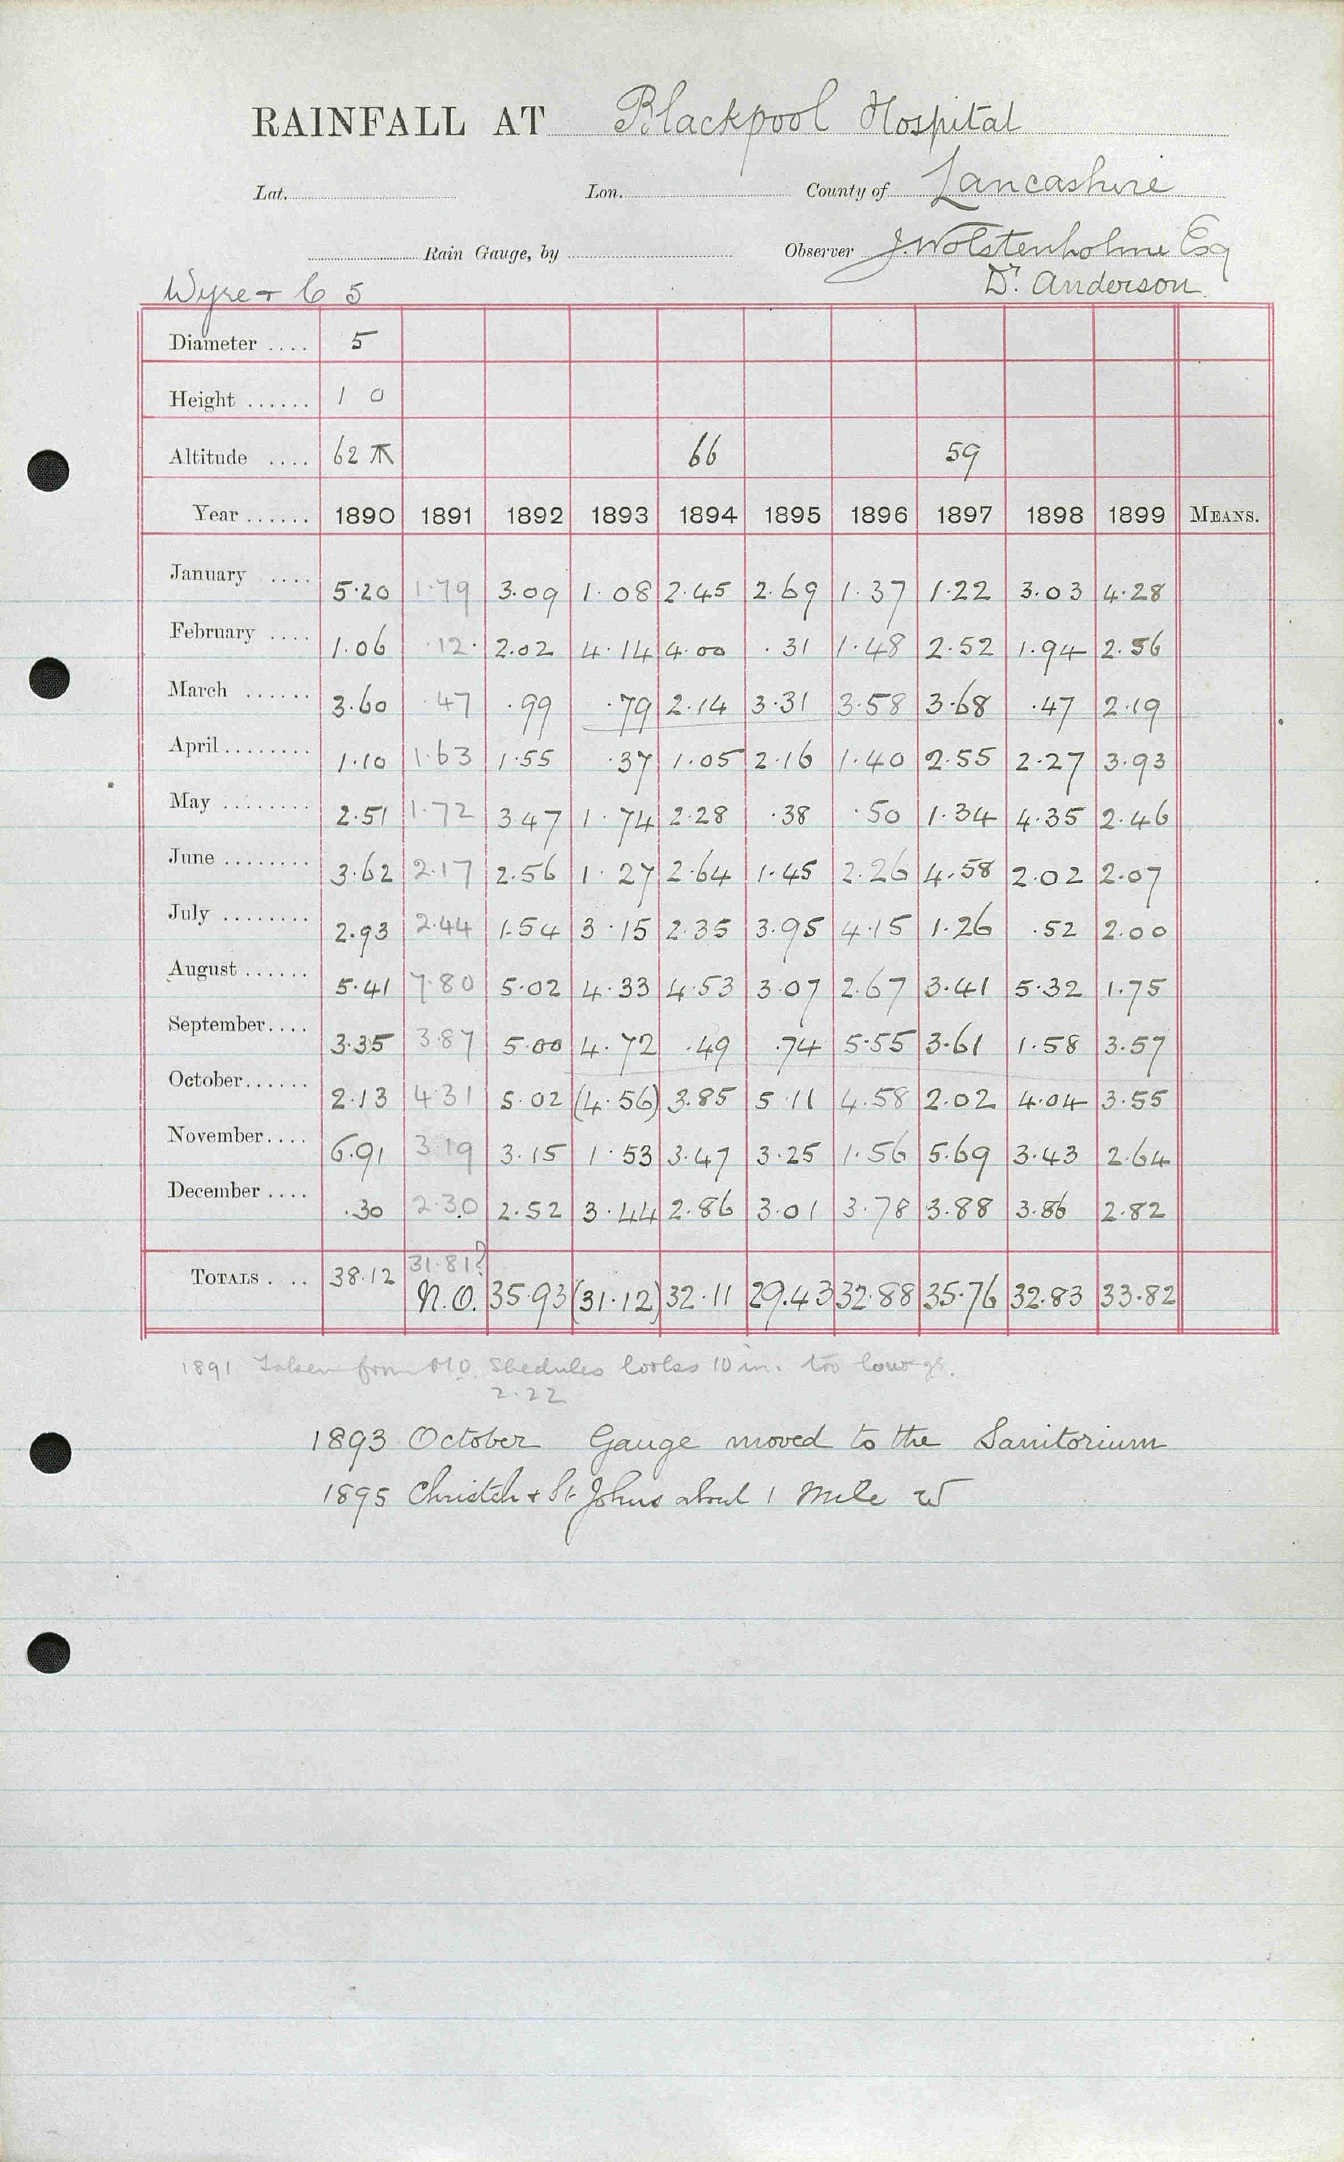 RAINFALL AT Blackpool Hospital
Lat. Lon. County of Lancashire
Rain Gauge, by Observer J. Wolstenholme Esq
Dr. Anderson
Wyre + C 5
Diameter .... 5
Height ...... 1 0
Altitude .... 62 66 59
Year ...... 1890 1891 1892 1893 1894 1895 1896 1897 1898 1899 MEANS.
January .... 5.20 1.79 3.09 1.08 2.45 2.69 1.37 1.22 3.03 4.28
February .... 1.06 .12 2.02 4.14 4.00 .31 1.48 2.52 1.94 2.56
March ...... 3.60 .47 .99 .79 2.14 3.31 3.58 3.68 .47 2.19
April ........ 1.10 1.63 1.55 .37 1.05 2.16 1.40 2.55 2.27 3.93
May ........ 2.51 1.72 3.47 1.74 2.28 .38 .50 1.34 4.35 2.46
June ........ 3.62 2.17 2.56 1.27 2.64 1.45 2.26 4.58 2.02 2.07
July ........ 2.93 2.44 1.54 3.15 2.35 3.95 4.15 1.26 .52 2.00
August ...... 5.41 7.80 5.02 4.33 4.53 3.07 2.67 3.41 5.32 1.75
September.... 3.35 3.87 5.00 4.72 .49 .74 5.55 3.61 1.58 3.57
October...... 2.13 4.31 5.02 (4.56) 3.85 5.11 4.58 2.02 4.04 3.55
November.... 6.91 3.19 3.15 1.53 3.47 3.25 1.56 5.69 3.43 2.64
December .... .30 2.30 2.52 3.44 2.86 3.01 3.78 3.88 3.86 2.82
31.81?
TOTALS . .. 38.12 N.O. 35.93 (31.12) 32.11 29.43 32.88 35.76 32.83 33.82
1891 Taken from M.O. Shedules looks 10 in. too low
2.22
1893 October Gauge moved to the Sanitorium
1895 Christch + St Johns about 1 Mile W